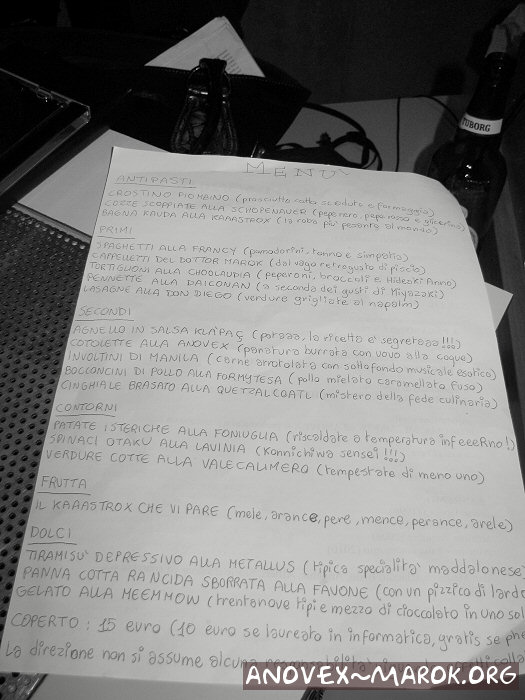 MENU'
ANTIPASTI
CROSTINO PIOMBINO (prosciutto cotto scaduto e formaggio)
COZZE SCOPPIATE ALLA SCHOPENAUER (peperono, pepe rosso e glicerina)
BAGNA KAUDA ALLA KAAASTROX (la roba piu' pesante al mondo)
PRIMI
SPAGHETTI ALLA FRANCY (pomodorini, tonno e simpatia)
CAPPELLETTI DEL DOTTOR MAROK (dal vago retrogusto di piscio)
TORTIGLIONI ALLA CHOOLAUDIA (peperoni, broccoli e Hideaki Anno)
PENNETTE ALLA DAICONAN (a seconda dei gusti di Miyazaki)
LASAGNE ALLA DON DIEGO (verdure grigliate al napalm)
SECONDI
AGNELLO IN SALSA KLAPAÇ (poraaa, la ricetta e' segretaaa !!!)
COTOLETTE ALLA ANOVEX (panatura burrata con uovo alla coque)
INVOLTINI DI MANILA (carne arrotolata con sottofondo musicale esotico)
BOCCONCINI DI POLLO ALLA FORMYTESA (pollo mielato caramellato fuso)
CINGHIALE BRASATO ALLA QUETZALCOATL (mistero della fede culinaria)
CONTORNI
PATATE ISTERICHE ALLA FONIUGLIA (riscaldate a temperatura infeeeRno!)
SPINACI OTAKU ALLA LAVINIA (Konnichiwa sensei !!!)
VERDURE COTTE ALLA VALECALIMERO (tempestate di meno uno)
FRUTTA
IL KAAASTROX CHE VI PARE (mele, arance, pere, mence, perance, arele)
DOLCI
TIRAMISU' DEPRESSIVO ALLA METALLUS (tipica specialita' maddalonese)
PANNA COTTA RANCIDA SBORRATA ALLA FAVONE (con un pizzico di lardo
GELATO ALLA MEEMMOW (trentanove tipi e mezzo di cioccolato in uno sol
COPERTO: 15 euro (10 euro se laureato in informatica, gratis se phe
La direzione non si assume alcuna
TUBORG
ANOVEX~MAROK.ORG